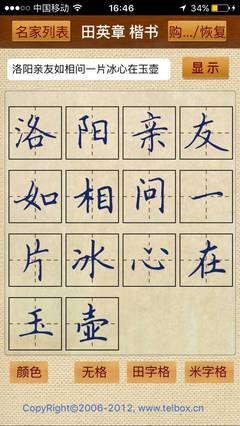 中国移动 16:46 34%
名家列表 田英章 楷书 购.../恢复
洛阳亲友如相问一片冰心在玉壶 显示
洛阳亲友
如相问一
片冰心在
玉壶
颜色 无格 田字格 米字格
CopyRight©2006-2012, www.telbox.cn